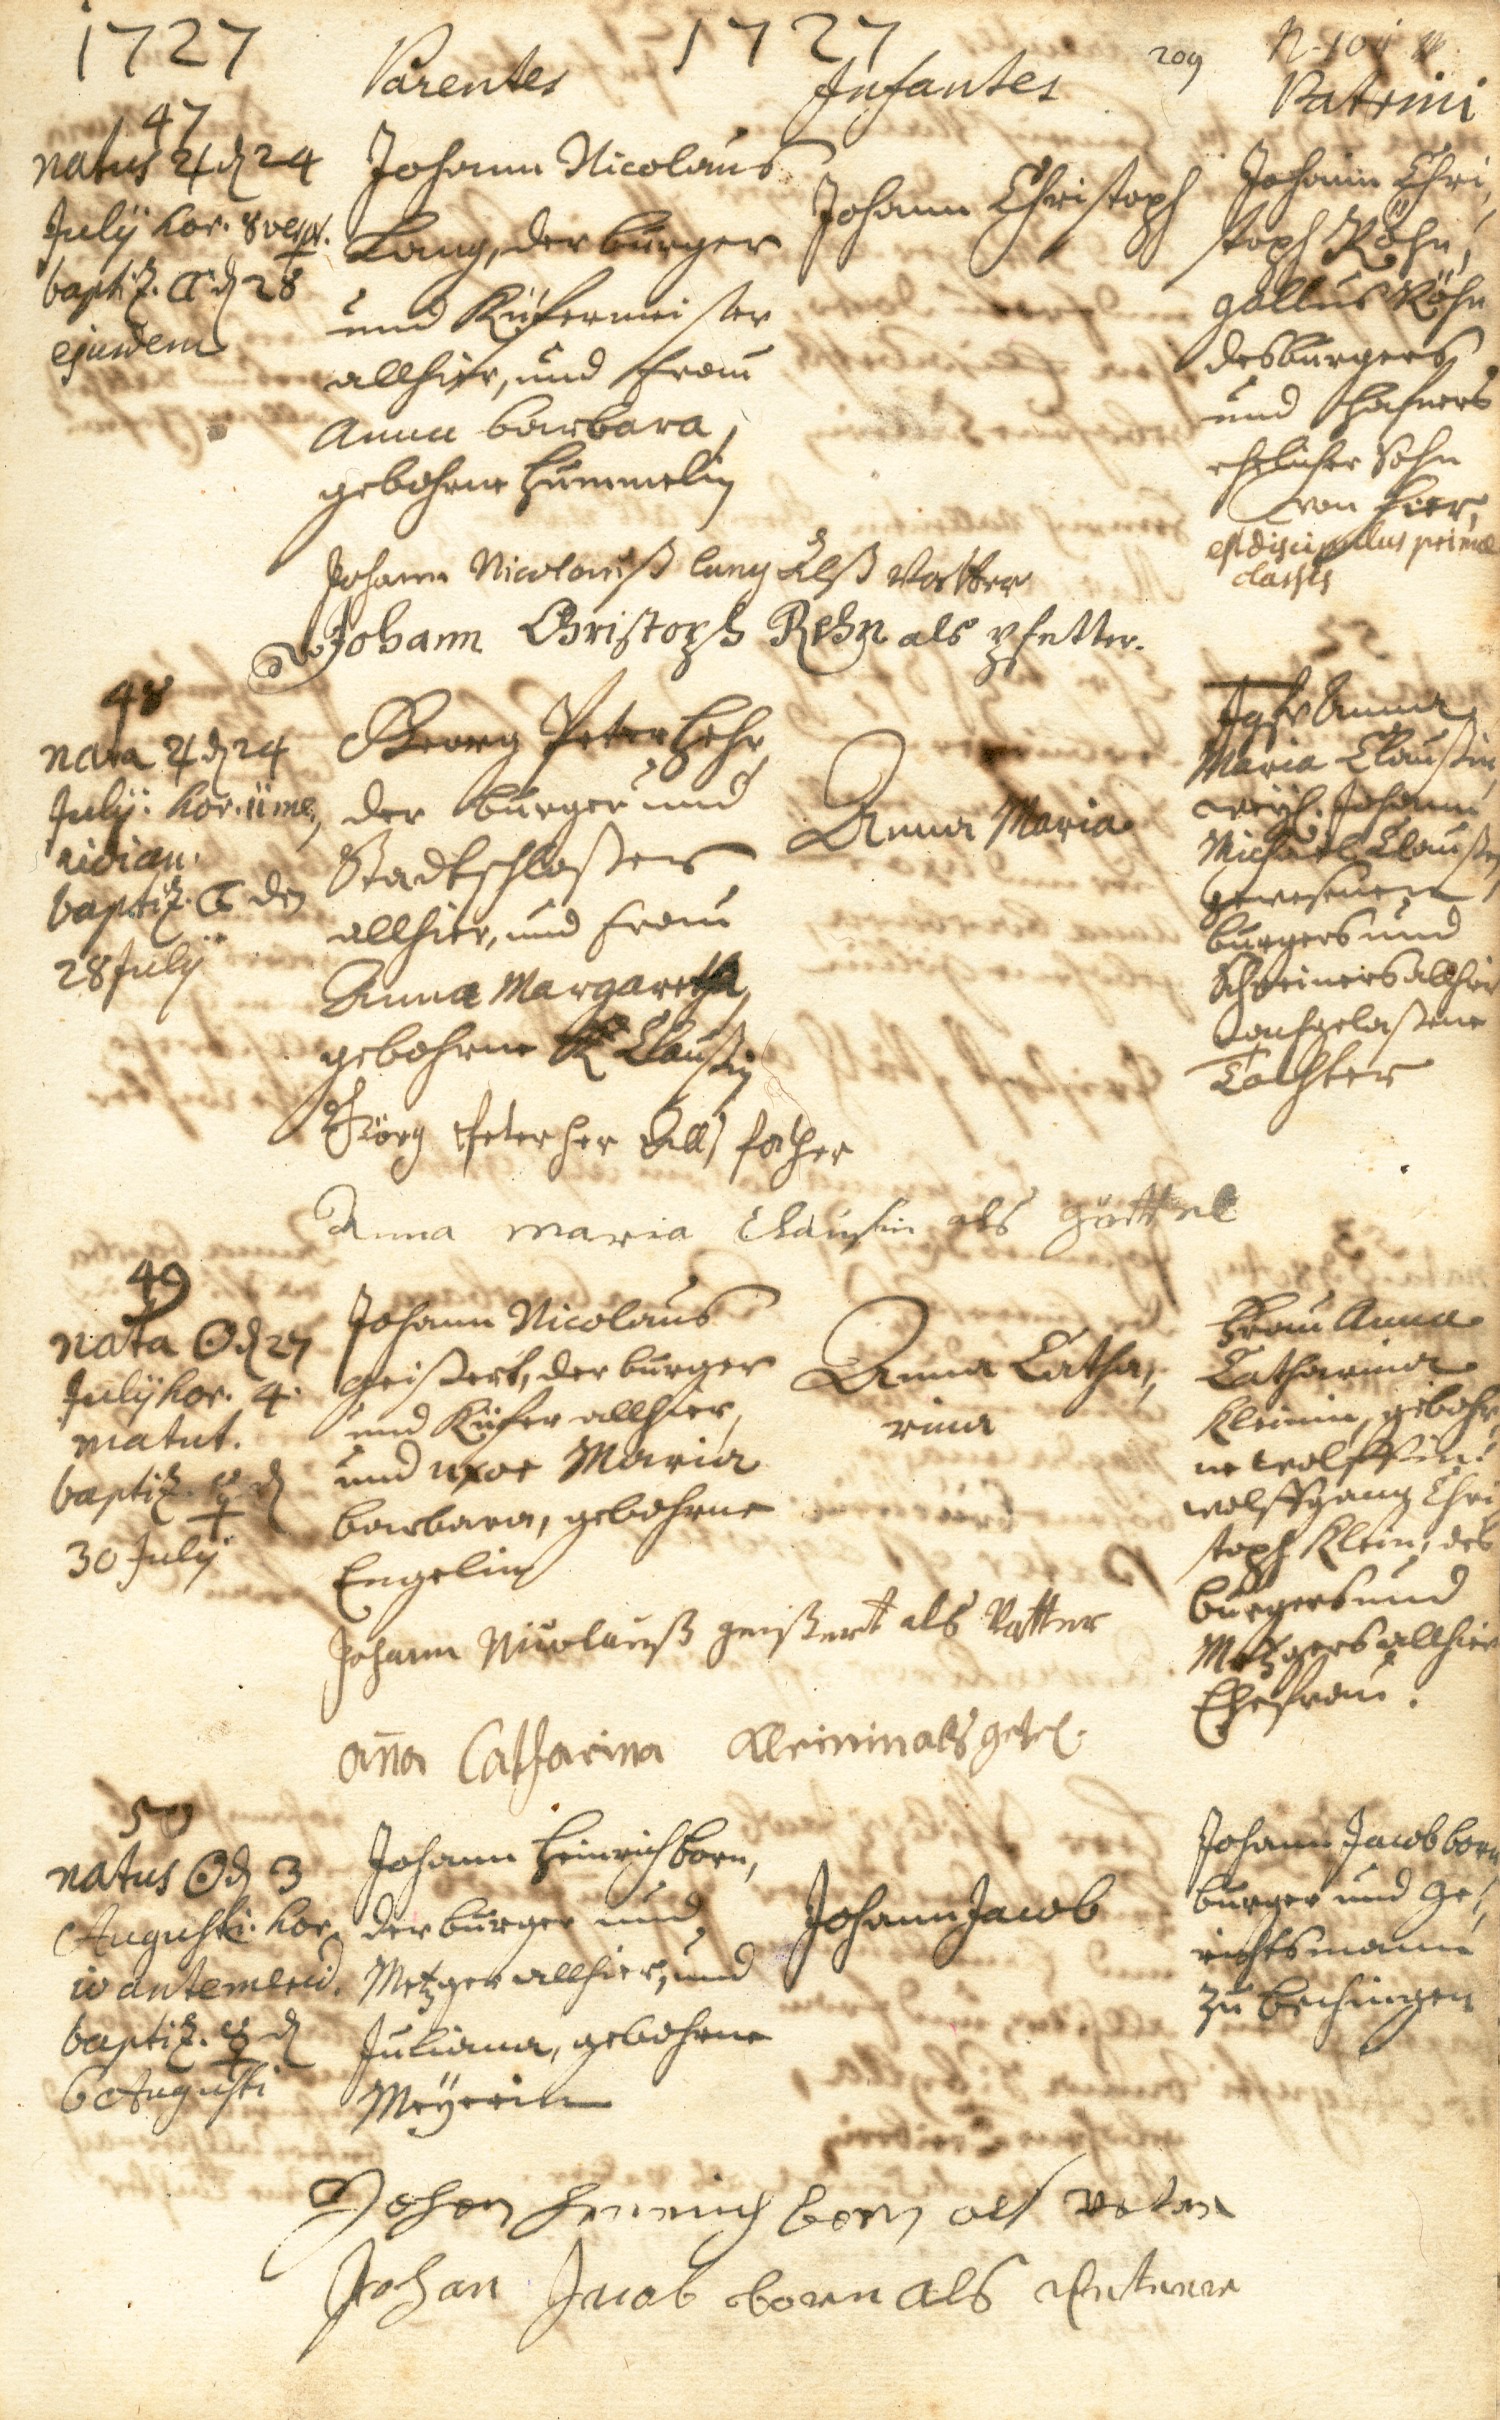 1727 1727 209
Parentes Infantes Patrini
47
natus ♃ d 24
Julÿ hor. 8 vesp.
baptiz. ☾ d 28
ejusdem
Johann Nicolaus
Lang, der burger
und Küfermeister
allhier, und Frau
Anna barbara,
gebohrne Hummelin
Johann Christoph
Johann Chri,
stoph Röhn,
gallus Röhn
des burgers
und Hafners
ehelicher Sohn
von hier,
est discipulus primæ
classis
Johann Nicolauß lang Alß Vatter
Johann Christoph Rehn als pfetter.
48
nata ♃ d 24
Julÿ: hor. 11 me,
ridian.
baptiz. ☾ den
28 Julÿ
Georg Peter Hehr,
der burger und
Stadtschloßer
allhier, und Frau
Anna Margaretha
gebohrne Claußin
Anna Maria
Jgfr Anna
Maria Claußin,
weÿl. Johann
Michael Claußen
gewesenen
burgers und
Schreiners allhier
nachgelaßene
Tochter
Görg Peter her Alls father
Anna maria Clausin als göttel
49
nata ☉ d 27
Julÿ hor. 4.
matut.
baptiz. ☿ d
30 Julÿ
Johann Nicolaus
geißert, der burger
und Küfer allhier,
und uxor Maria
barbara, gebohrne
Engelin
Anna Catha,
rina
Frau Anna
Catharina
Kleinin, gebohr,
ne wolffin:
wolffgang Chri
stoph Klein, des
burgers und
Metzgers allhier
Ehefrau.
Johann Nicolauß geißert als Vatter
aña Catharina Kleininals getel.
50
natus ☉ d 3
Augusti. hor.
10 antemerid.
baptiz. ☿ d
6 Augusti
Johann Heinrich born,
der burger und
Metzger allhier, und
Juliana, gebohrne
Meÿerin
Johann Jacob
Johann Jacob born
burger und Ge,
richtsmann
zu bechingen
Johan Henrich born als vatter
Johan Jacob born als